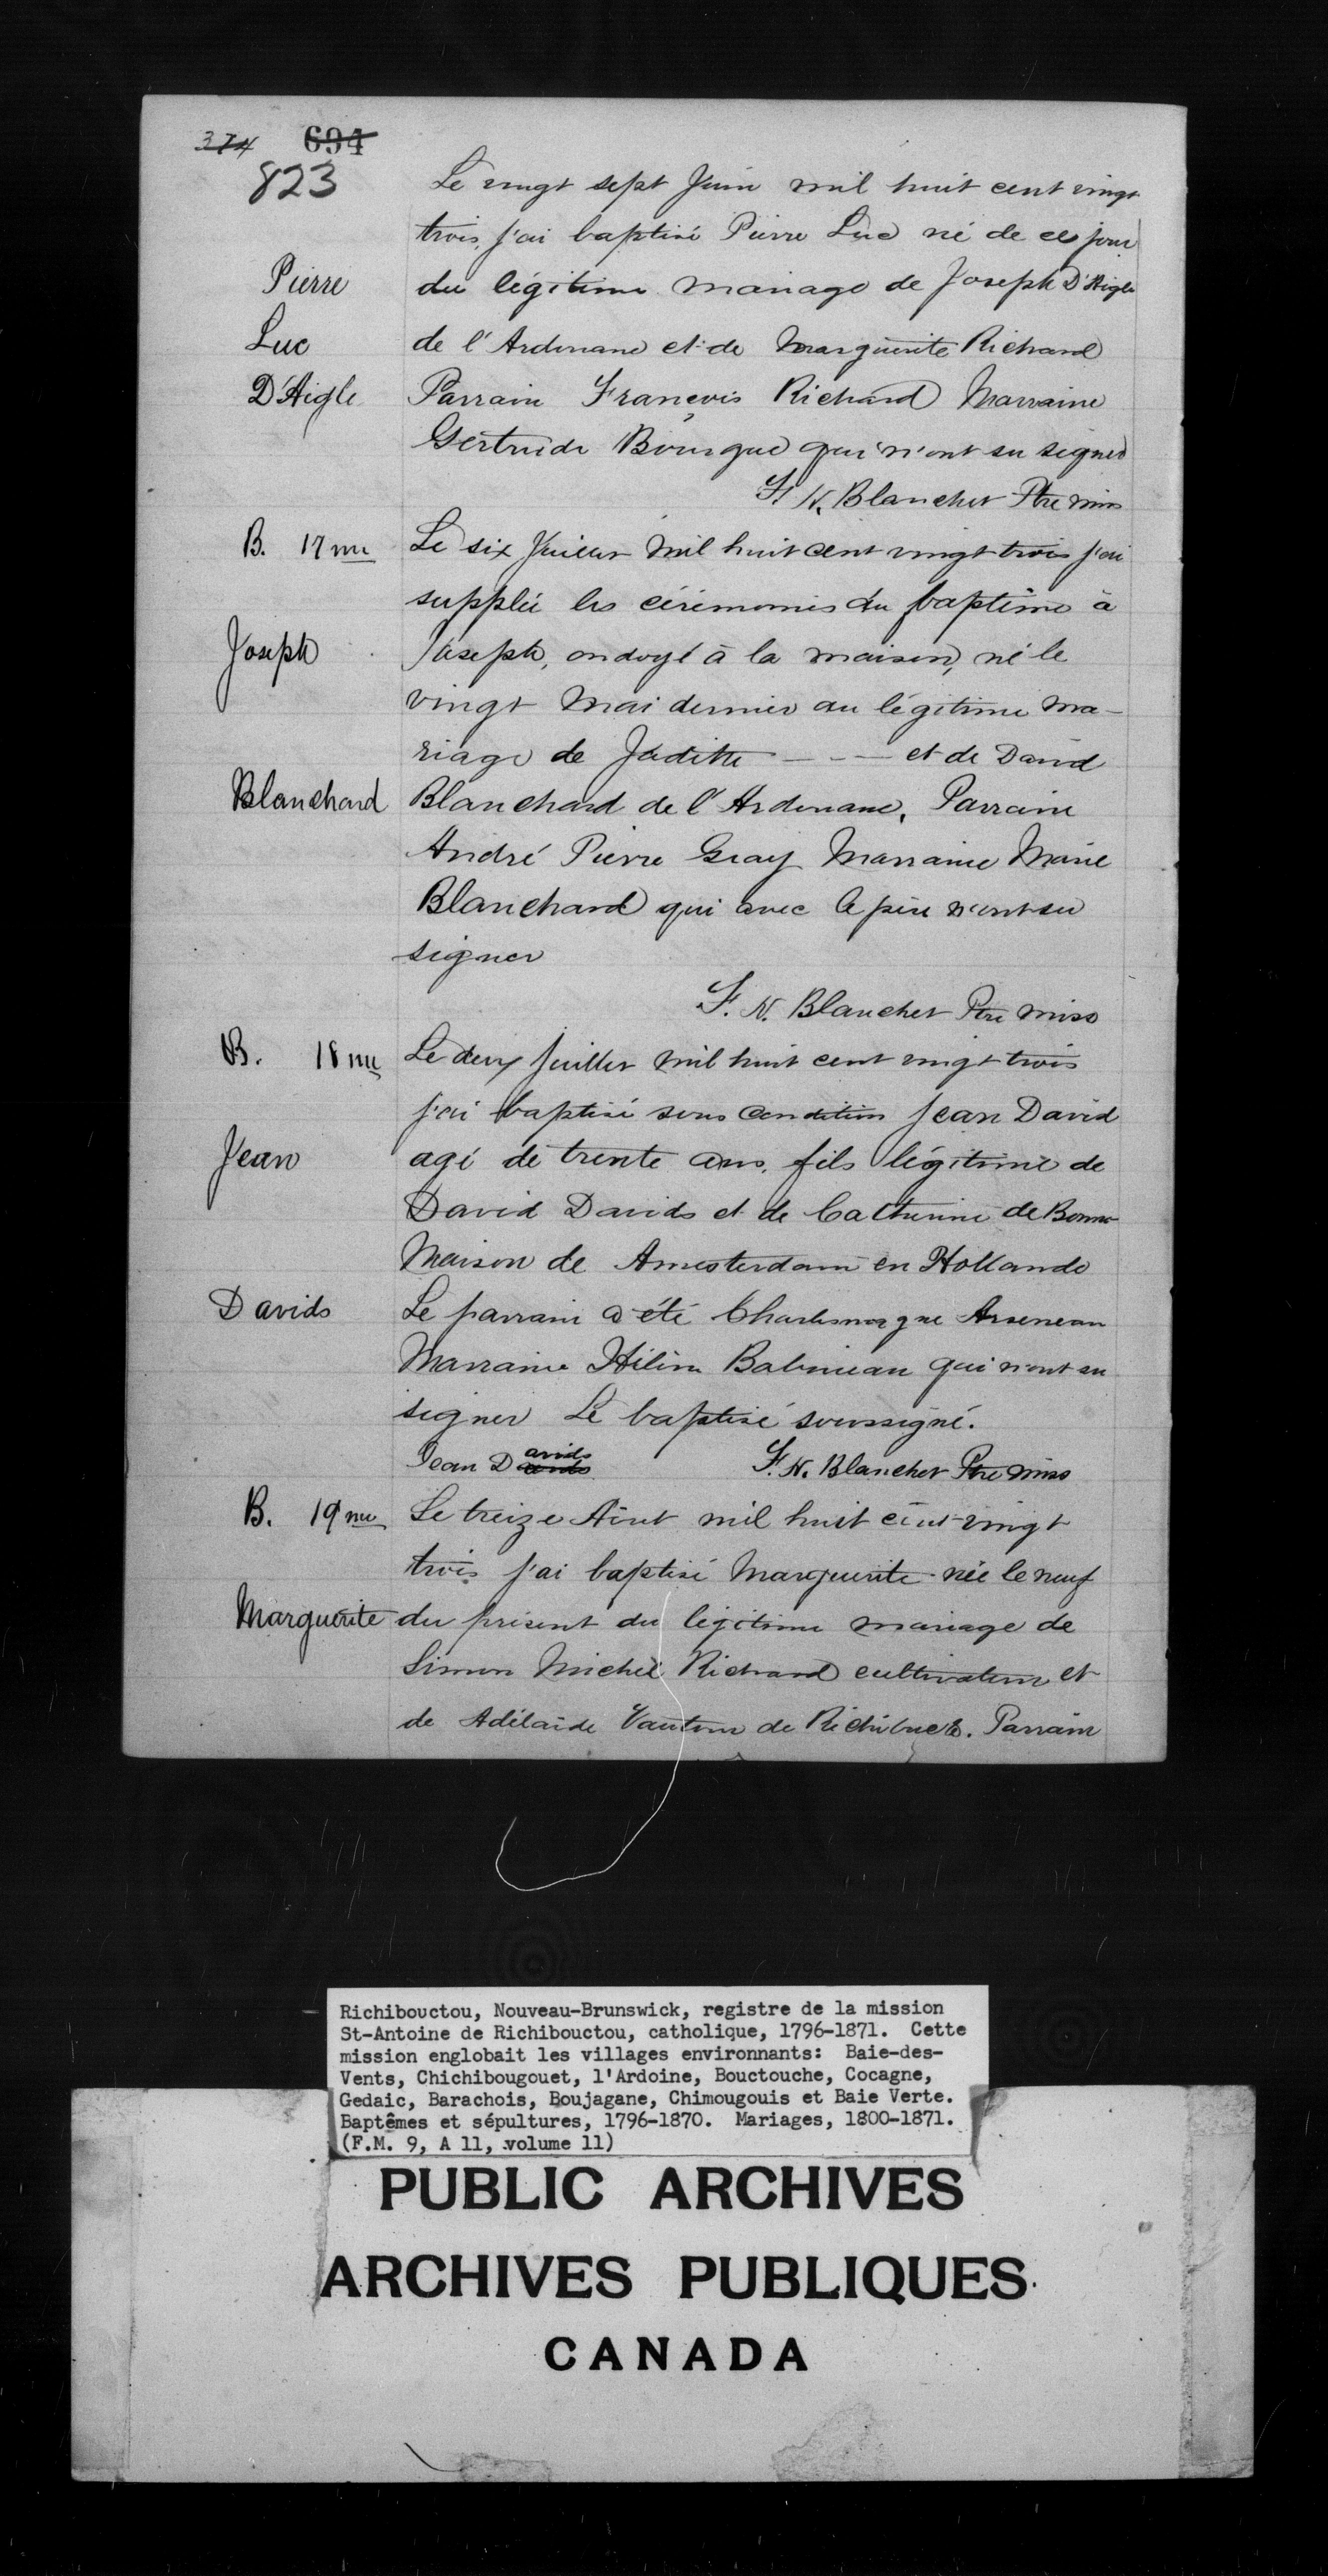 374 694
823
Le vingt sept Juin mil huit cent vingt
trois, j'ai baptisé Pierre Luc né de ce jour
Pierre du légitime mariage de Joseph D'Aigle
Luc de l'Ardouane et de Marguerite Richard
D'Aigle Parrain François Richard Marraine
Gertrude Bourque qui n'ont su signer
F. N. Blanchet Ptre miss
B. 17me Le six Juillet mil huit cent vingt trois j'ai
suppléé les cérémonies du baptême à
Joseph Joseph, ondoyé à la maison, né le
vingt Mai dernier du légitime ma-
riage de Judithe - - - et de David
Blanchard Blanchard de l'Ardouane, Parrain
André Pierre Gray Marraine Marie
Blanchard qui avec le père n'ont su
signer
F. N. Blanchet Ptre miss
B. 18me Le deux Juillet mil huit cent vingt trois
j'ai baptisé sous condition Jean David
Jean agé de trente ans, fils légitime de
David Davids et de Catherine de Bonne
Maison de Amesterdam en Hollande
Davids Le parrain a été Charlesmagne Arseneau
Marraine Hélène Babineau qui n'ont su
signer Le baptisé soussigné.
Jean Davids F. N. Blanchet Ptre miss
B. 19me Le treize Aout mil huit cent vingt
trois j'ai baptisé Marguerite née le neuf
Marguerite du présent du légitime mariage de
Simon Michel Richard cultivateur et
de Adélaide Vautour de Richibuctou. Parrain
Richibouctou, Nouveau-Brunswick, registre de la mission
St-Antoine de Richibouctou, catholique, 1796-1871. Cette
mission englobait les villages environnants: Baie-des-
Vents, Chichibougouet, l'Ardoine, Bouctouche, Cocagne,
Gedaic, Barachois, Boujagane, Chimougouis et Baie Verte.
Baptêmes et sépultures, 1796-1870. Mariages, 1800-1871.
(F.M. 9, A 11, volume 11)
PUBLIC ARCHIVES
ARCHIVES PUBLIQUES
CANADA